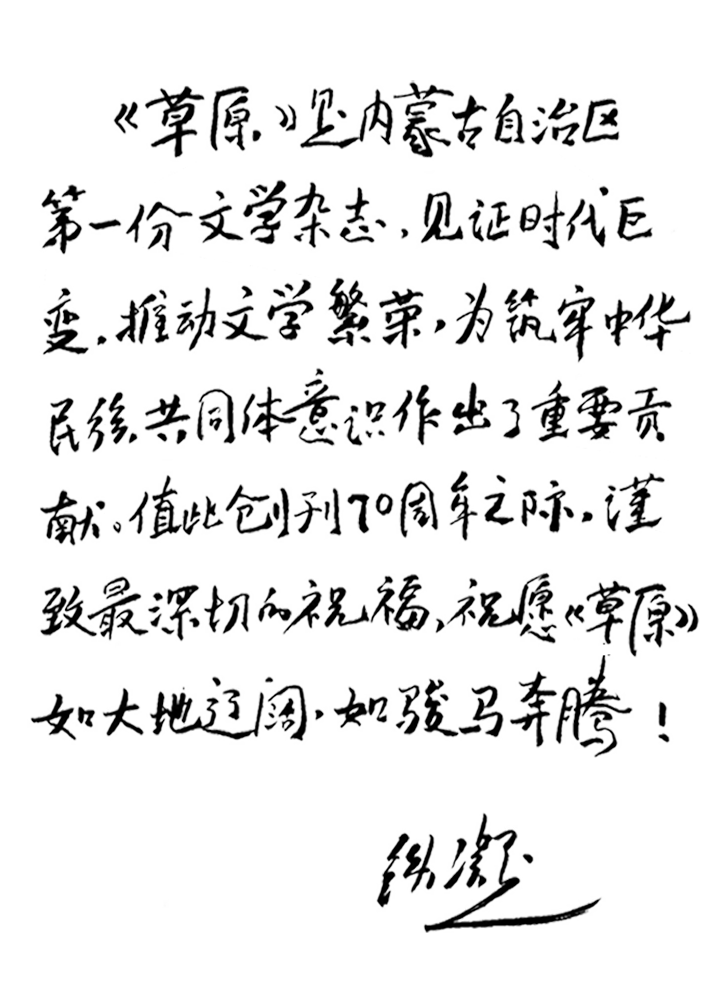 《草原》是内蒙古自治区
第一份文学杂志,见证时代巨
变,推动文学繁荣,为筑牢中华
民族共同体意识作出了重要贡
献。值此创刊70周年之际,谨
致最深切的祝福,祝愿《草原》
如大地辽阔,如骏马奔腾!
铁凝